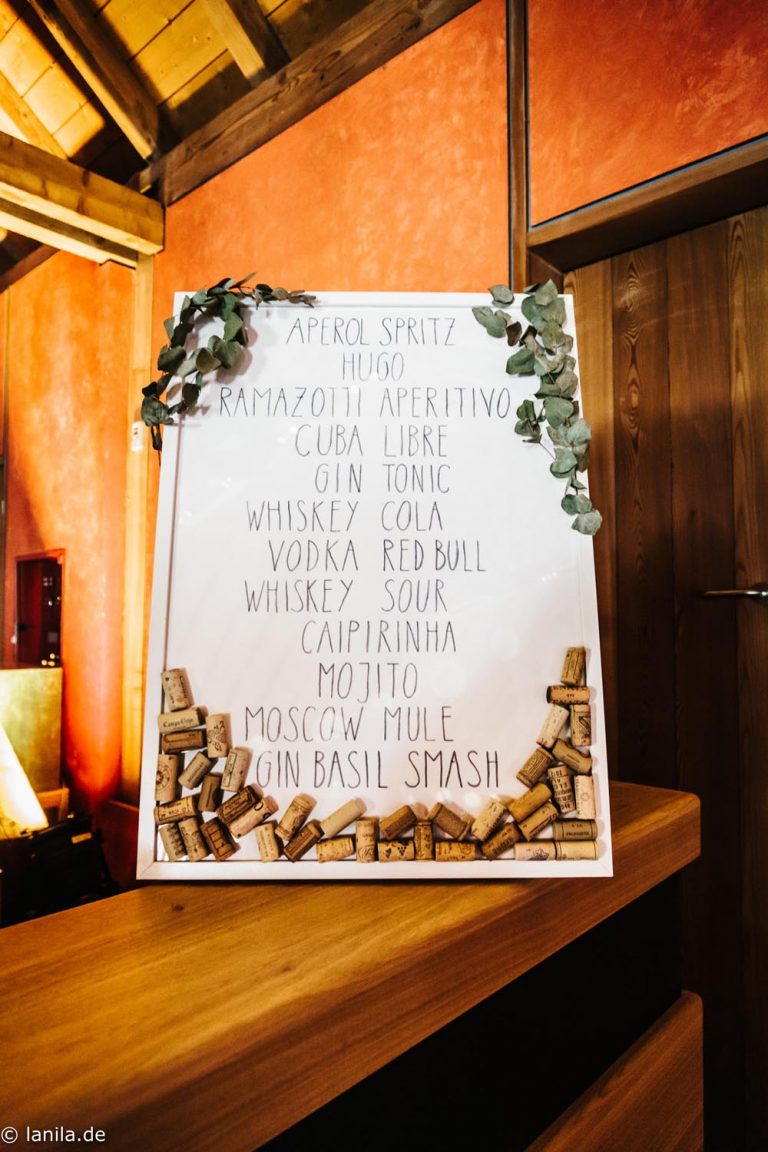 APEROL SPRITZ
HUGO
RAMAZOTTI APERITIVO
CUBA LIBRE
GIN TONIC
WHISKEY COLA
VODKA RED BULL
WHISKEY SOUR
CAIPIRINHA
MOJITO
MOSCOW MULE
GIN BASIL SMASH
© lanila.de